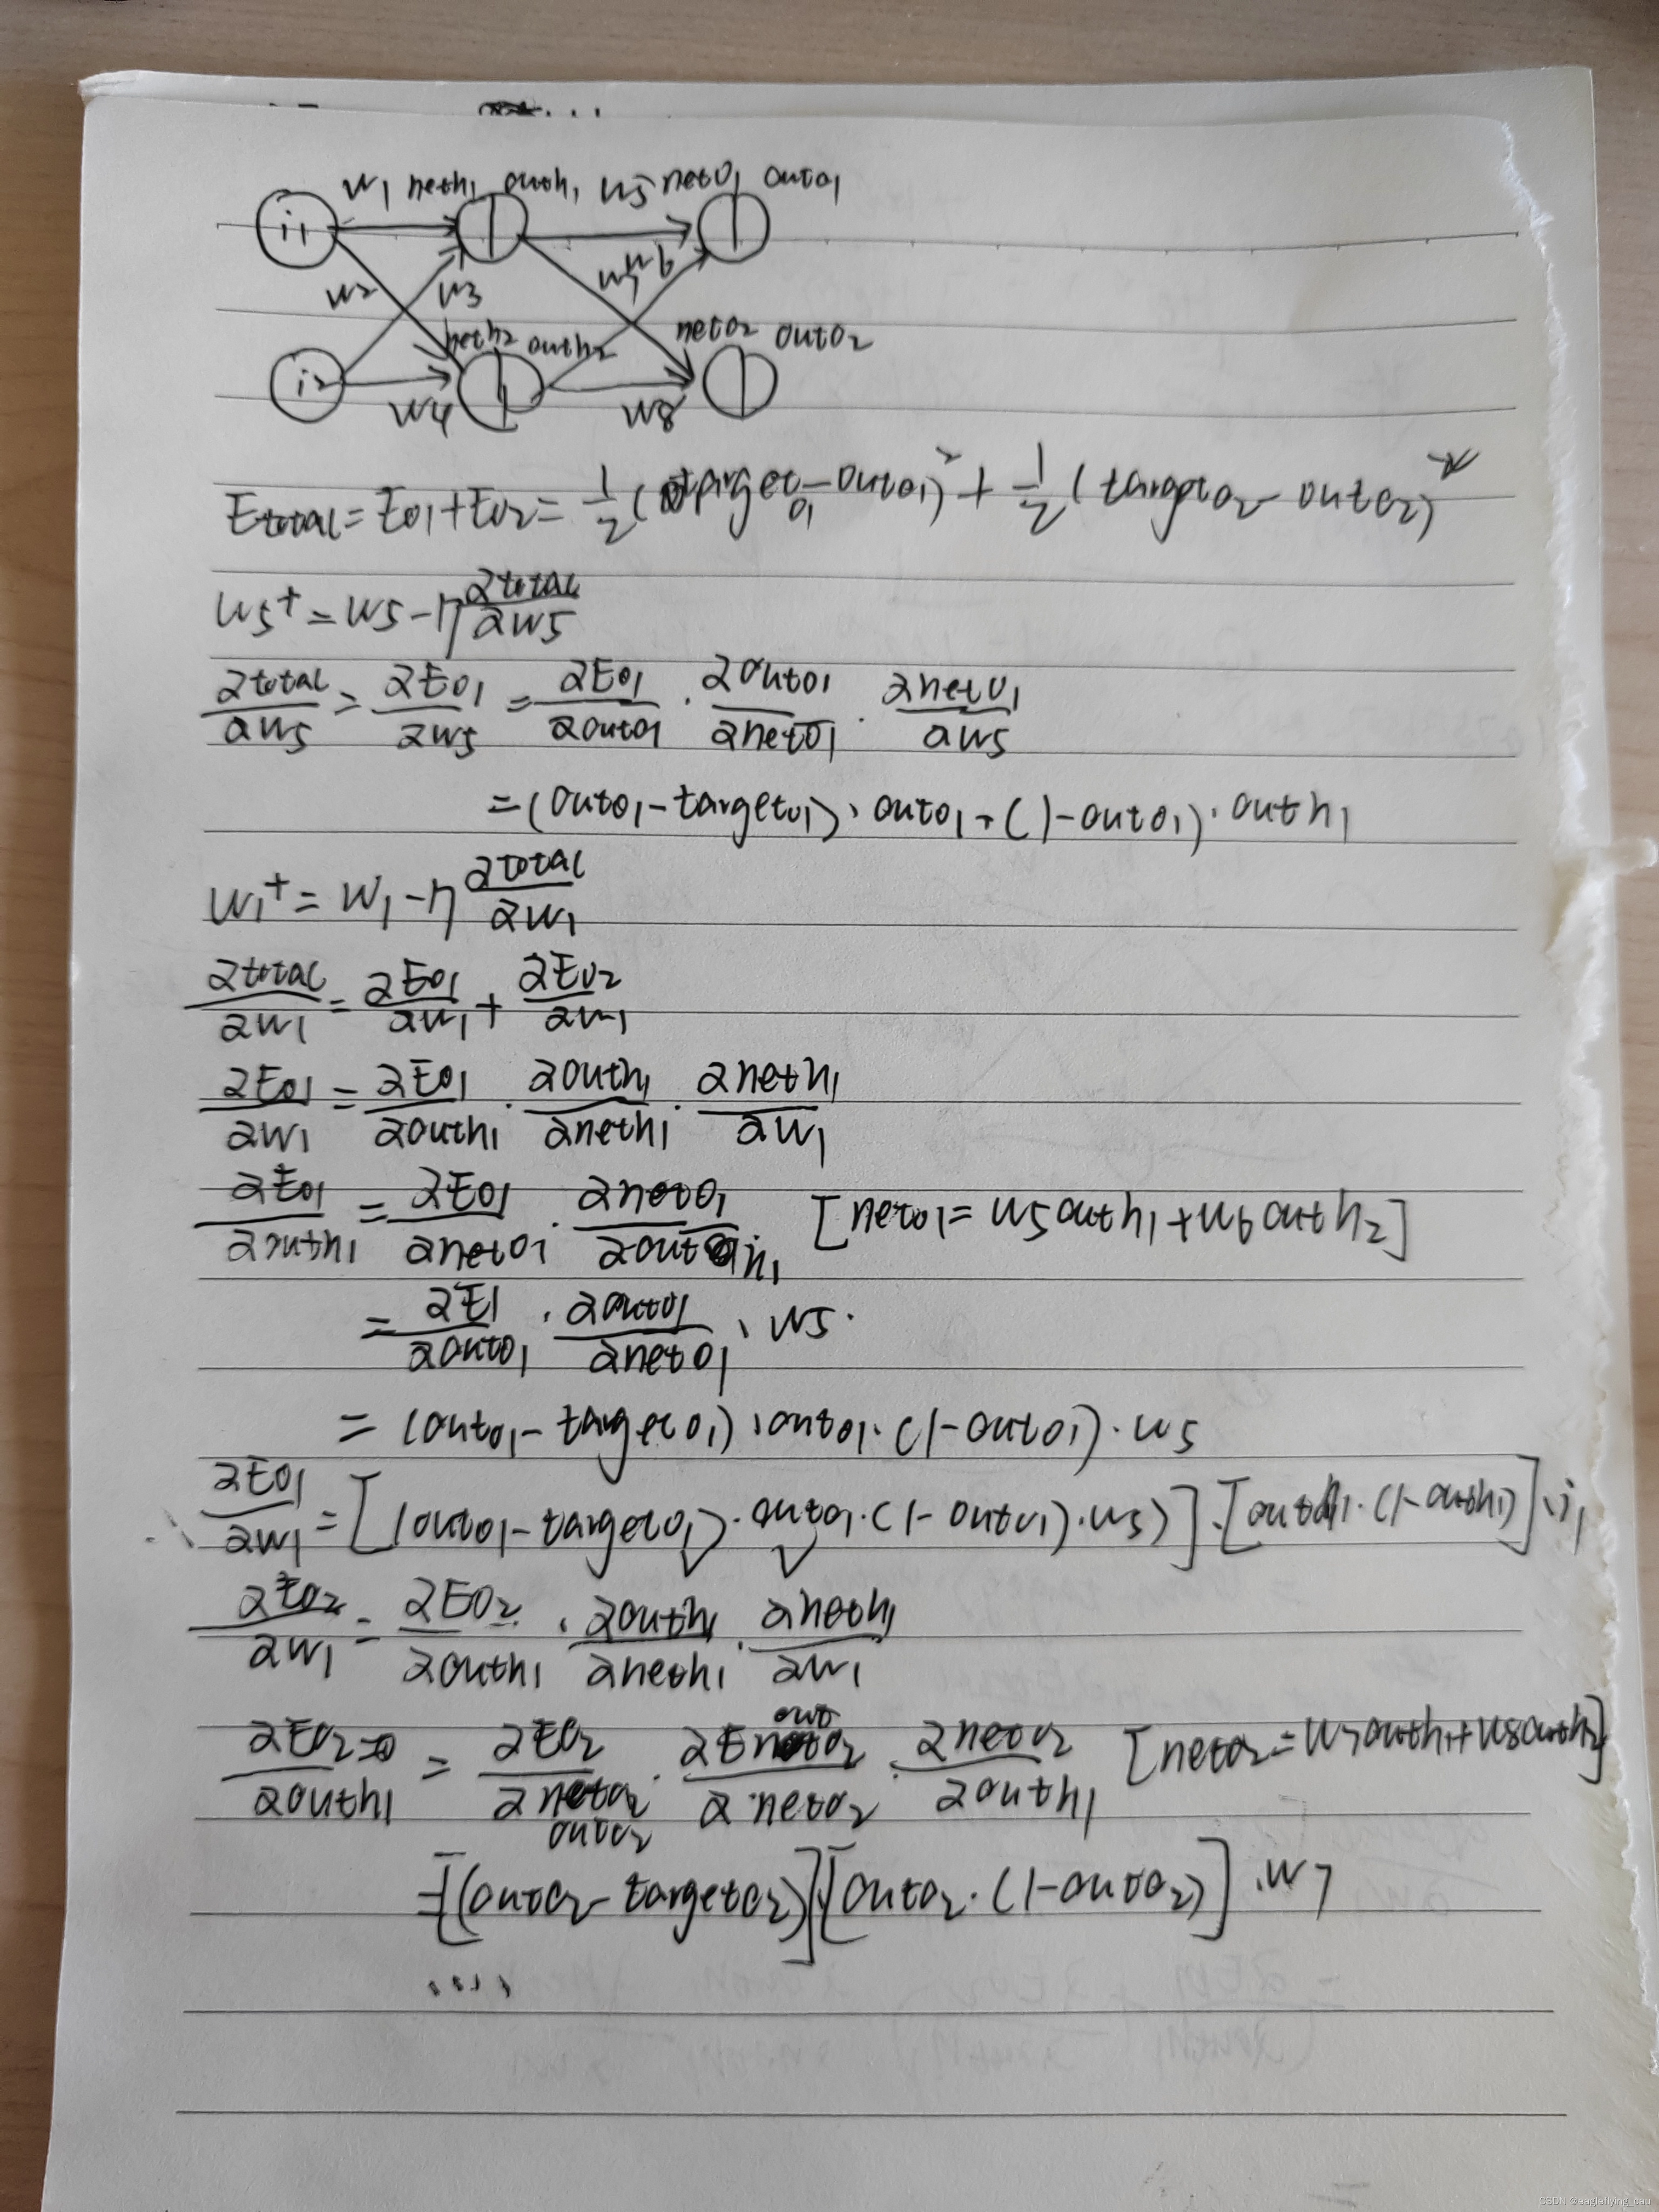 w1 neth1 outh1 w5 neto1 outo1
i1
w2 w3 w7 w6
neth2 outh2 neto2 outo2
i2
w4 w8
Etotal = Eo1 + Eo2 = 1/2 (targeto1 - outo1)² + 1/2 (targeto2 - outo2)²
w5⁺ = w5 - η ∂total/∂w5
∂total/∂w5 = ∂Eo1/∂w5 = ∂Eo1/∂outo1 · ∂outo1/∂neto1 · ∂neto1/∂w5
= (outo1 - targeto1) · outo1 · (1 - outo1) · outh1
w1⁺ = w1 - η ∂total/∂w1
∂total/∂w1 = ∂Eo1/∂w1 + ∂Eo2/∂w1
∂Eo1/∂w1 = ∂Eo1/∂outh1 · ∂outh1/∂neth1 · ∂neth1/∂w1
∂Eo1/∂outh1 = ∂Eo1/∂neto1 · ∂neto1/∂outh1 [neto1 = w5outh1 + w6outh2]
= ∂E1/∂outo1 · ∂outo1/∂neto1 · w5 ·
= (outo1 - targeto1) · outo1 · (1 - outo1) · w5
∴ ∂Eo1/∂w1 = [(outo1 - targeto1) · outo1 · (1 - outo1) · w5)] · [outh1 · (1 - outh1)] · i1
∂Eo2/∂w1 = ∂Eo2/∂outh1 · ∂outh1/∂neth1 · ∂neth1/∂w1
∂Eo2/∂outh1 = ∂Eo2/∂outo2 · ∂outo2/∂neto2 · ∂neto2/∂outh1 [neto2 = w7outh1 + w8outh2]
= [(outo2 - targeto2)] · [outo2 · (1 - outo2)] · w7
....
CSDN @eagleflying_cau